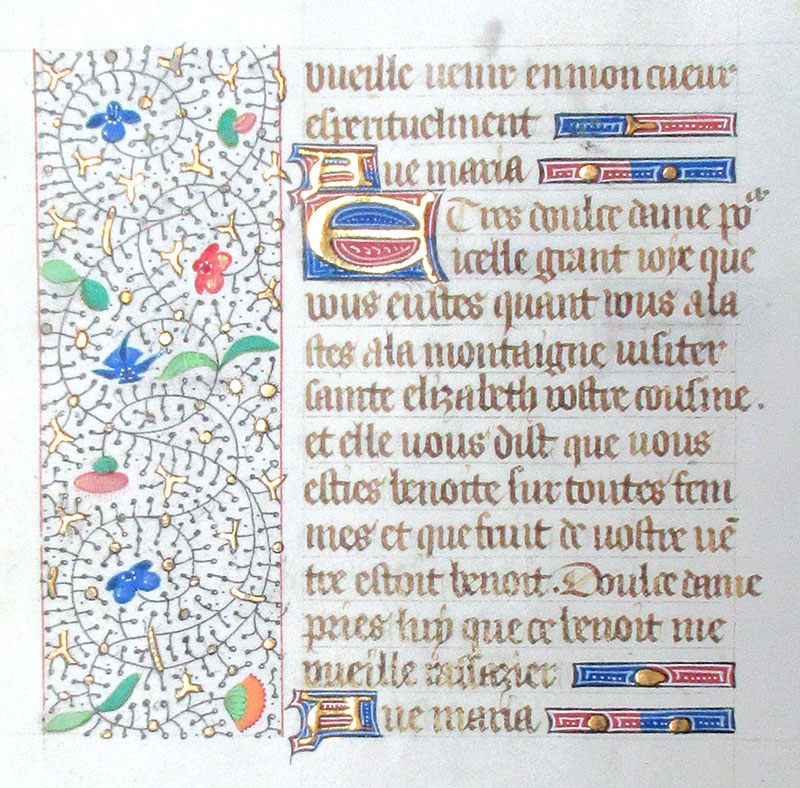 vueille venir en mon cueur
esperituelment
Aue maria
E Tres doulce dame po᷒
icelle grant ioye que
vous eustes quant vous ala
stes a la montaigne visiter
sainte elizabeth vostre cousine.
et elle vous dist que vous
esties benoite sur toutes fem
mes et que fruit de vostre uẽ
tre estoit benoit. Doulce dame
pries luy que ce benoit me
vueille rassazier
Aue maria